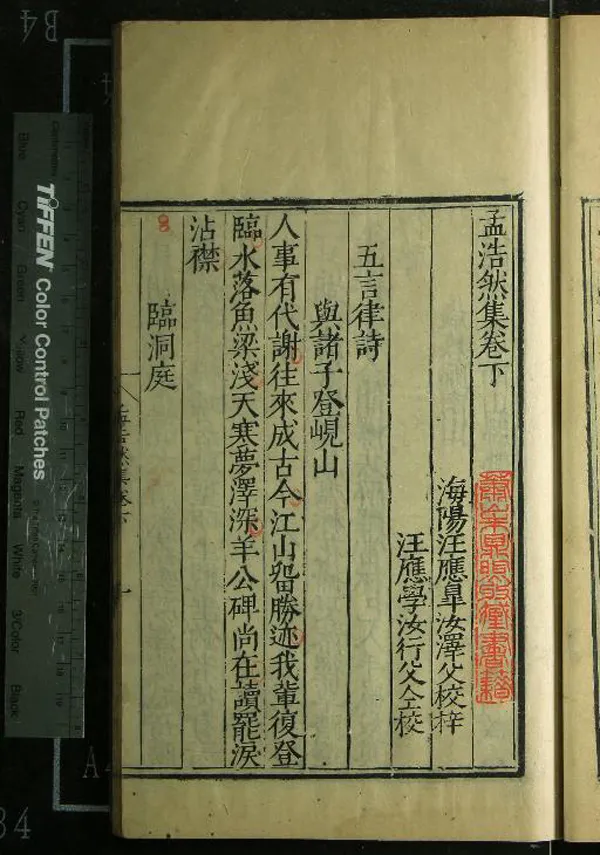 孟浩然集卷下
海陽汪應皐汝澤父校梓
汪應學汝行父仝校
五言律詩
與諸子登峴山
人事有代謝往來成古今江山畱勝迹我輩復登
臨水落魚梁淺天寒夢澤深羊公碑尚在讀罷淚
沾襟
臨洞庭
TIFFEN Color Control Patches
Blue
Cyan
Green
Yellow
Red
Magenta
White
3/Color
Black
B4